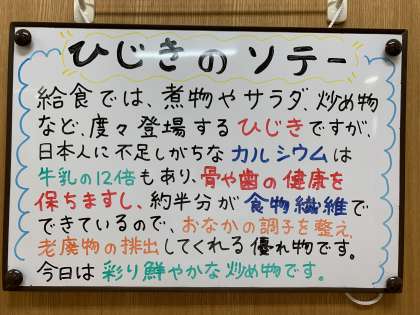 ひじきのソテー
給食では、煮物やサラダ、炒め物
など、度々登場するひじきですが、
日本人に不足しがちなカルシウムは
牛乳の12倍もあり、骨や歯の健康を
保ちますし、約半分が食物繊維で
できているので、おなかの調子を整え、
老廃物の排出してくれる優れ物です。
今日は彩り鮮やかな炒め物です。